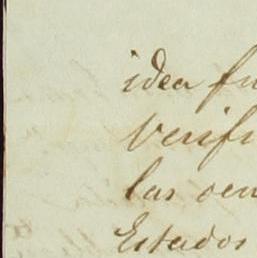 idea fu
Verifi
las ocu
Estados